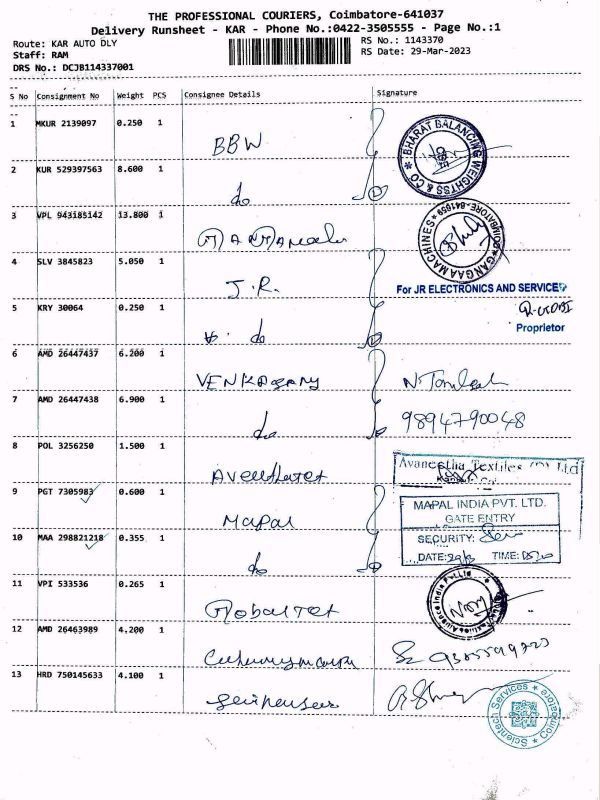 THE PROFESSIONAL COURIERS, Coimbatore-641037
Delivery Runsheet - KAR - Phone No.:0422-3505555 - Page No.:1
Route: KAR AUTO DLY
RS No.: 1143370
Staff: RAM
RS Date: 29-Mar-2023
DRS No.: DCJB114337001
S No Consignment No Weight PCS Consignee Details Signature
1 MKUR 2139097 0.250 1
BBW
BHARAT BALANCING WEIGHTSS & CO
2 KUR 529397563 8.600 1
do
3 VPL 943185142 13.800 1
GANGAA MACHINES COIMBATORE-641659
4 SLV 3845823 5.050 1
J.R.
For JR ELECTRONICS AND SERVICES
5 KRY 30064 0.250 1
do
Proprietor
6 AMD 26447437 6.200 1
7 AMD 26447438 6.900 1
do
9894790048
8 POL 3256250 1.500 1
Avaneetha Textiles (P) Ltd
9 PGT 7305983 0.600 1
Mapal
MAPAL INDIA PVT. LTD.
GATE ENTRY
10 MAA 298821218 0.355 1
do
SECURITY:
DATE: TIME:
11 VPI 533536 0.265 1
12 AMD 26463989 4.200 1
13 HRD 750145633 4.100 1
Scientech Services * Coimbatore *